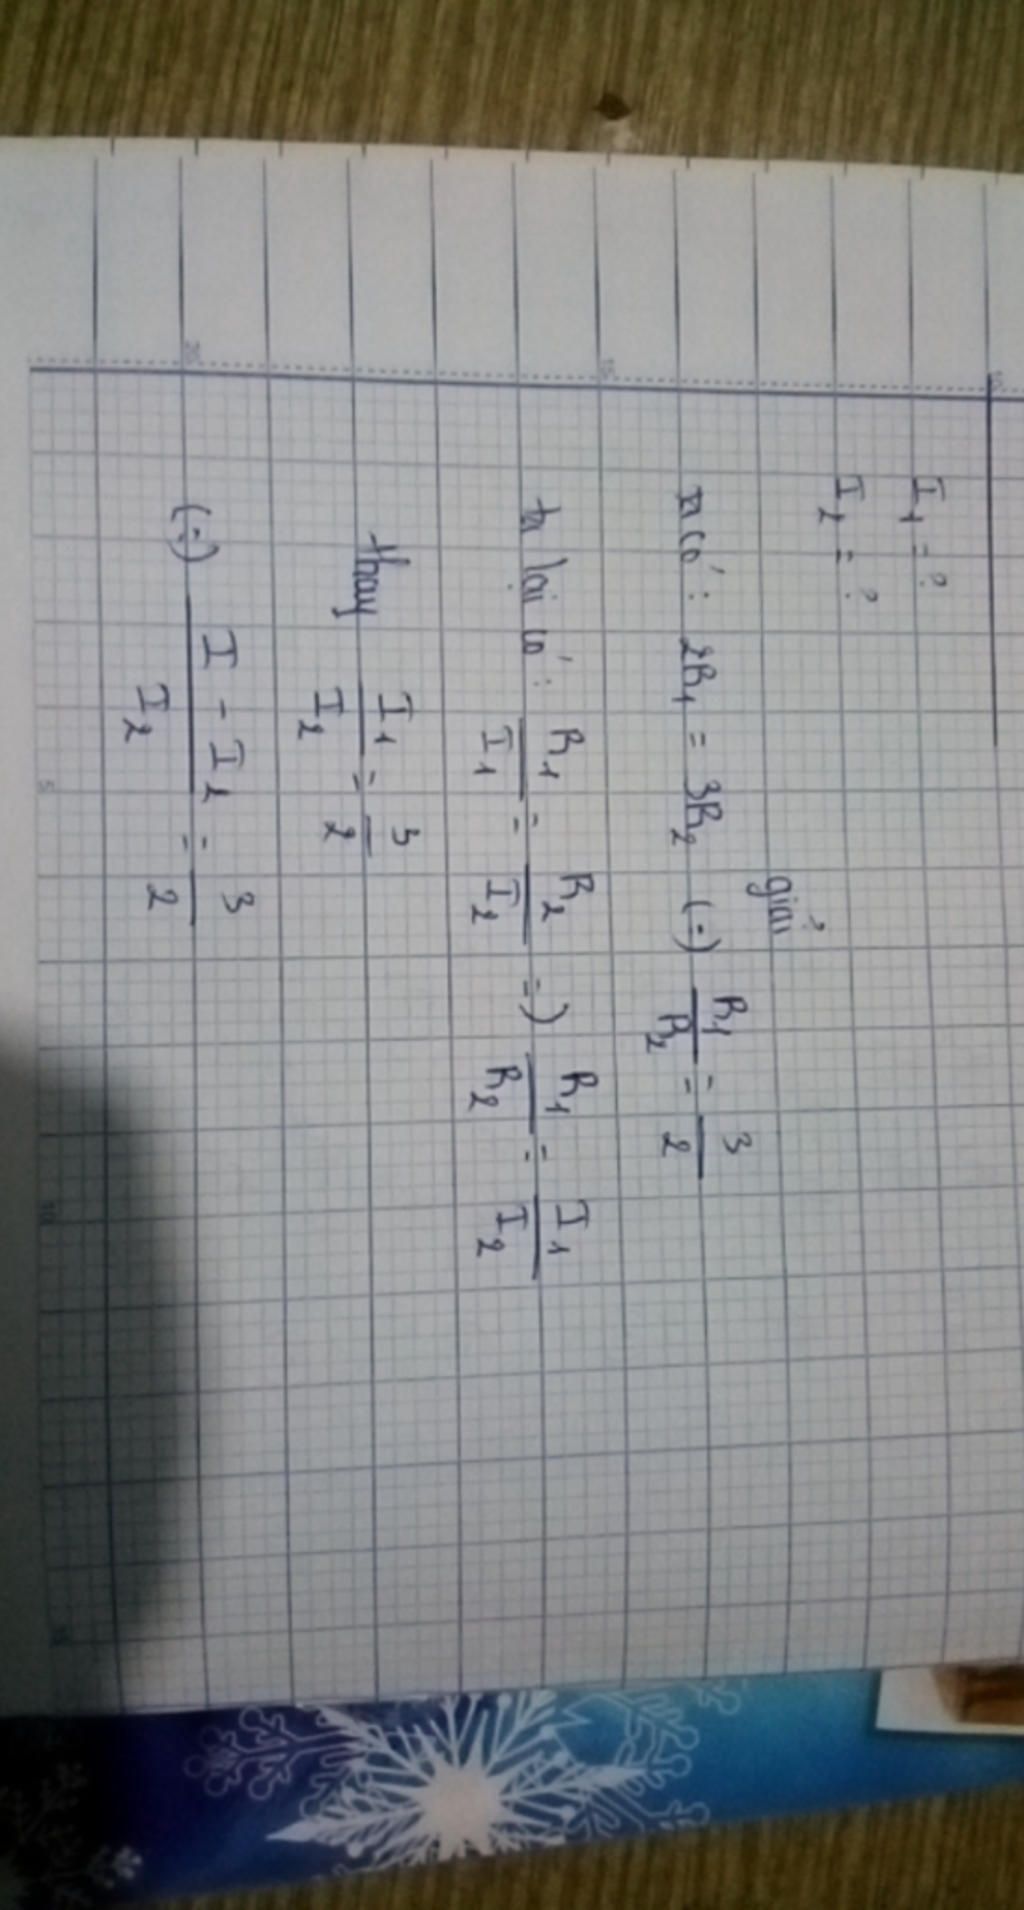 I₁ = ?
I₂ = ?
giải
ta có: 2R₁ = 3R₂ (=) R₁/R₂ = 3/2
ta lại có: R₁/I₁ = R₂/I₂ =) R₁/R₂ = I₁/I₂
thay I₁/I₂ = 3/2
(=) I - I₂/I₂ = 3/2